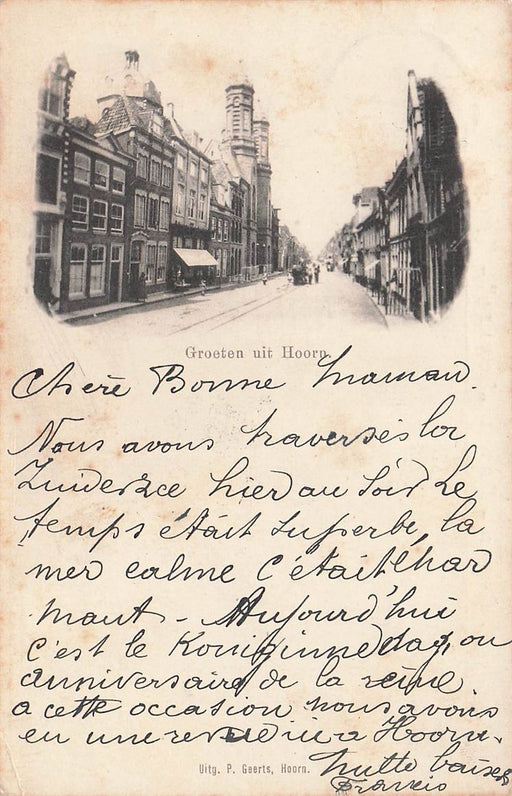 Groeten uit Hoorn.
Chère Bonne Maman.
Nous avons traversés la
Zuiderzee hier au soir le
temps était superbe, la
mer calme c'était char
mant - Aujourd'hui
c'est le Koniginnedag, ou
anniversaire de la reine.
a cette occasion nous avons
eu une revue ici a Hoorn.
baisers
Francis
Uitg. P. Geerts, Hoorn.